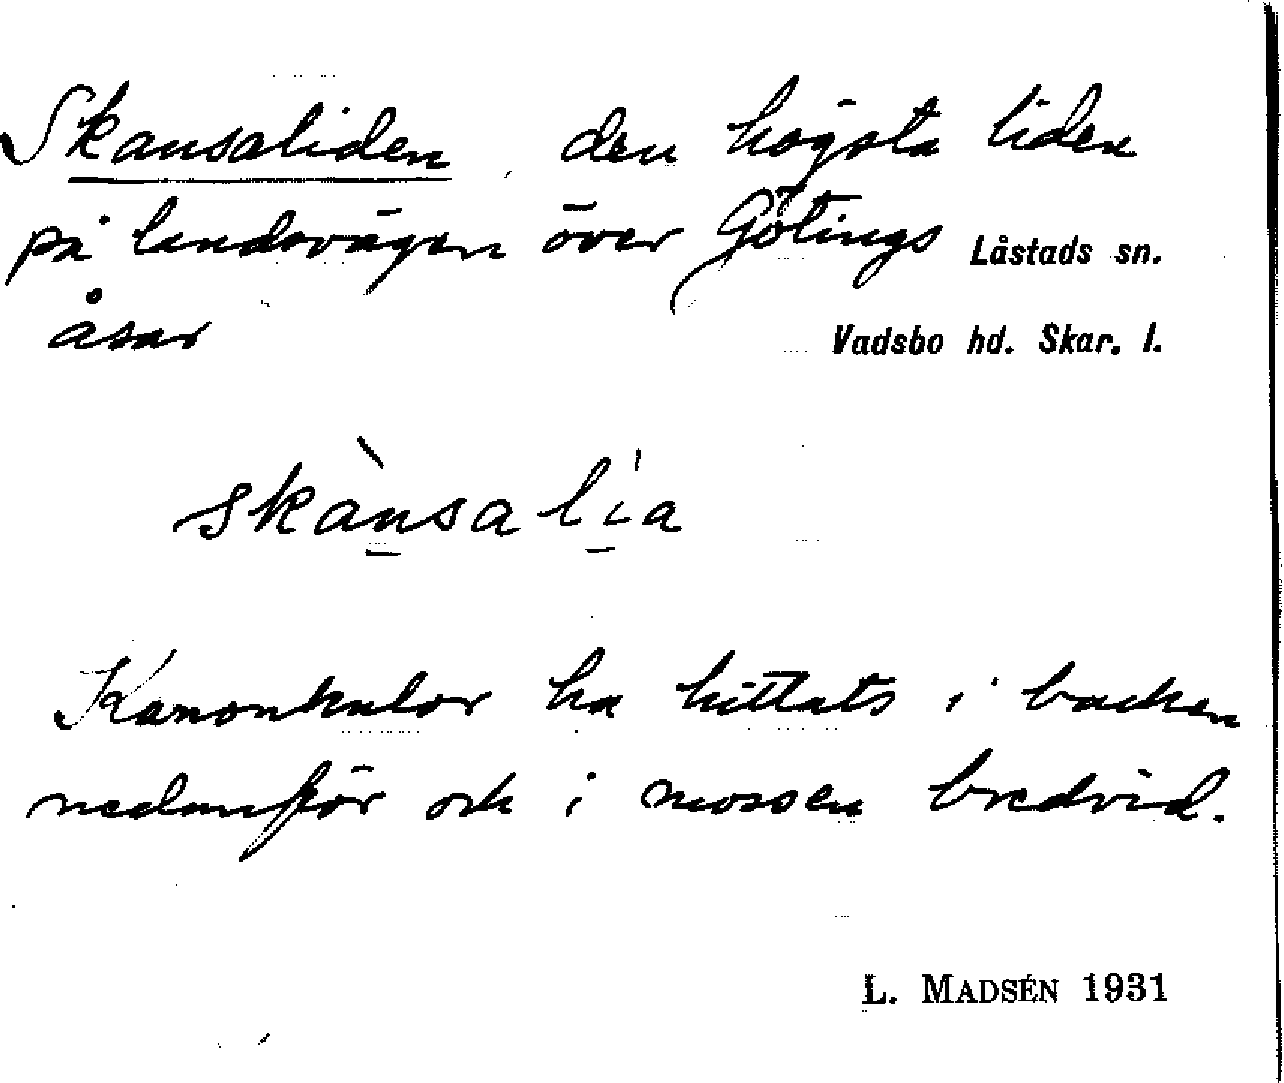 Skansaliden den högsta liden
på landsvägen över Götings Låstads sn.
åsar Vadsbo hd. Skar. l.
skànsalía
Kanonkulor ha hittats i backen
nedanför och i mossen bredvid.
L. MADSÉN 1931